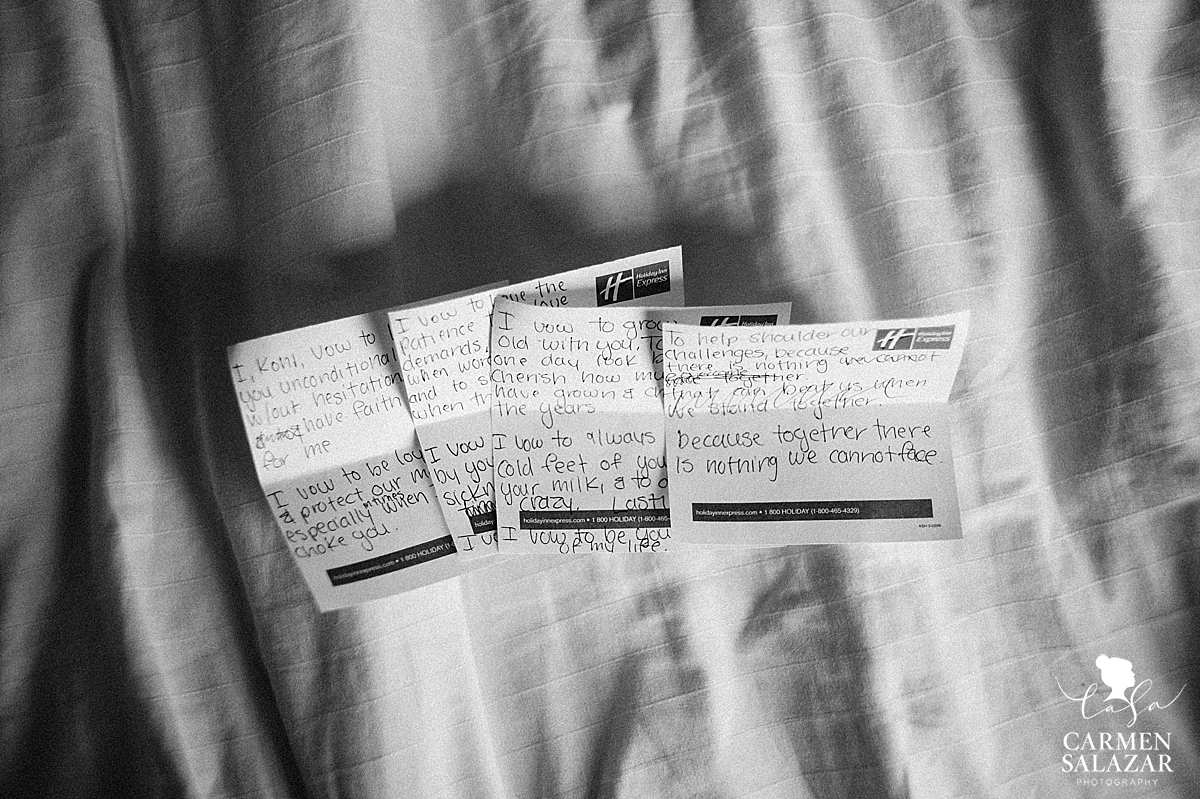 I, Koni, vow to
you unconditional
w/out hesitation
have faith
for me.
I vow to be
& protect our
especially when
choke you.
holidayinnexpress.com • 1 800 HOLIDAY (1-
Holiday Inn
Express
I vow to have the
Patience
demands,
when
and to
when
I vow
by you
holiday
Holiday Inn
I vow to grow
Old with you. To
one day look
Cherish how my
have grown &
the years
I vow to always
cold feet of you
your milk, & to
crazy. Lastl
holidayinnexpress.com • 1 800 HOLIDAY (1-800-465-
I vow to be you
of my life.
Holiday Inn
Express
To help shoulder our
challenges, because
there is nothing we cannot
face together
that can beat us when
we stand together.
because together there
is nothing we cannot face.
holidayinnexpress.com • 1 800 HOLIDAY (1-800-465-4329)
CaSa
CARMEN
SALAZAR
PHOTOGRAPHY